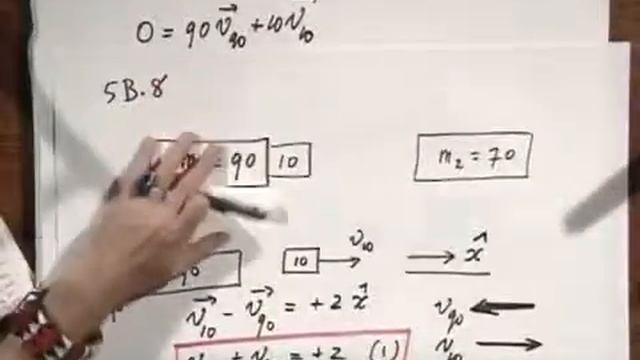 0 = 90 v⃗₉₀ + 10 v⃗₁₀
5B.8
= 90 10 m₂ = 70
10 v₁₀ x̂
v⃗₁₀ - v⃗₉₀ = +2 x̂ v₉₀
+ = +2 (1) v₁₀